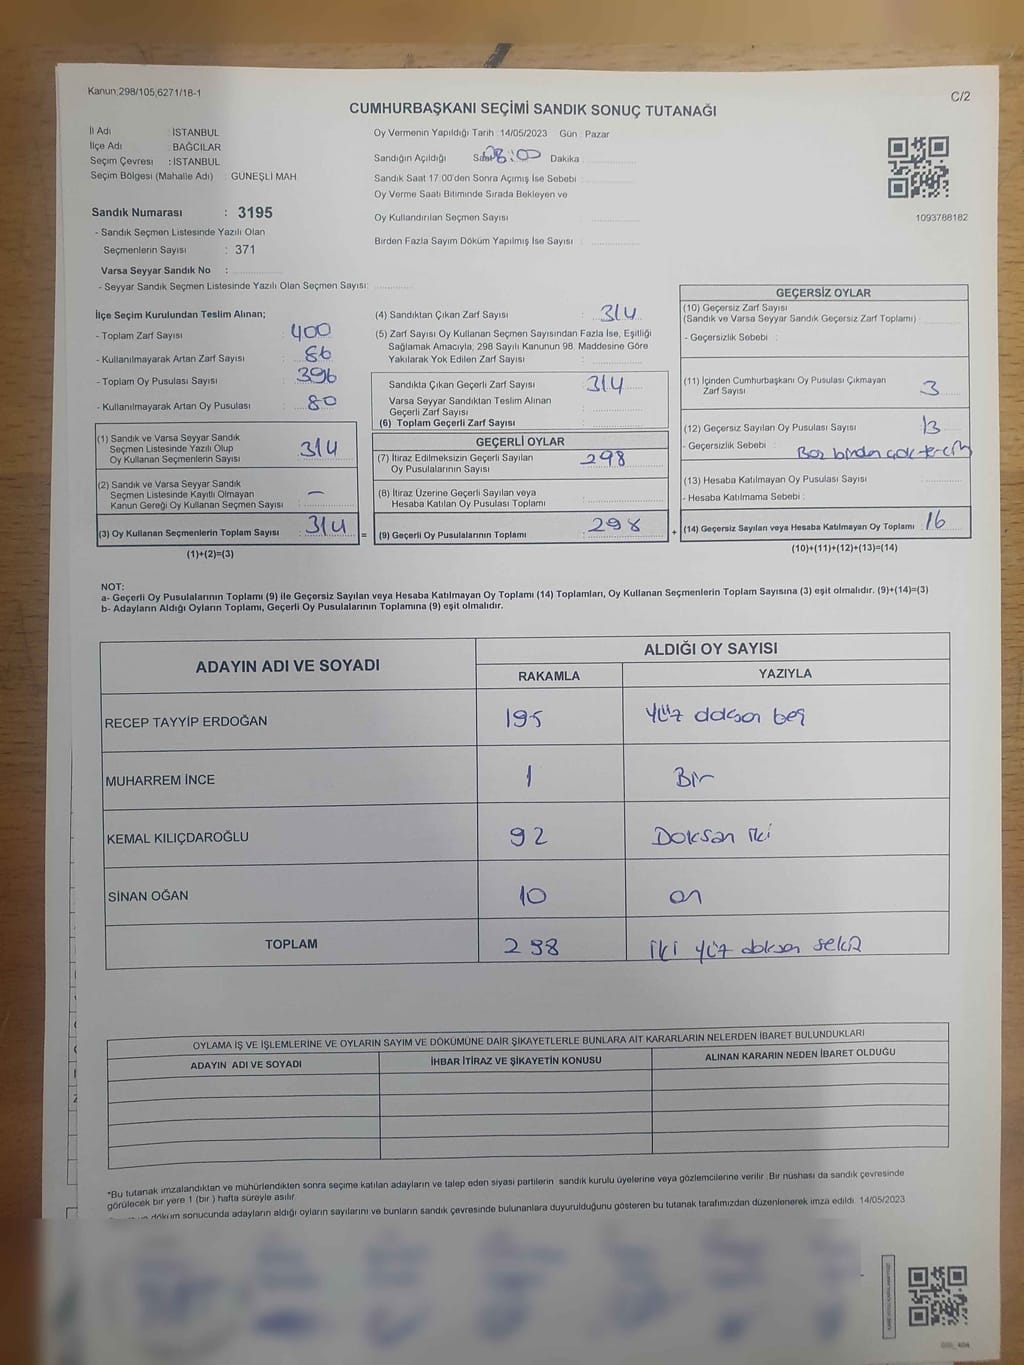 Kanun;298/105,6271/18-1
C/2
CUMHURBAŞKANI SEÇİMİ SANDIK SONUÇ TUTANAĞI
İl Adı : İSTANBUL
İlçe Adı : BAĞCILAR
Seçim Çevresi : İSTANBUL
Seçim Bölgesi (Mahalle Adı) : GÜNEŞLİ MAH
Sandık Numarası : 3195
- Sandık Seçmen Listesinde Yazılı Olan
Seçmenlerin Sayısı : 371
Varsa Seyyar Sandık No :
- Seyyar Sandık Seçmen Listesinde Yazılı Olan Seçmen Sayısı:
Oy Vermenin Yapıldığı Tarih :14/05/2023 Gün : Pazar
Sandığın Açıldığı Saat 08:00 Dakika
Sandık Saat 17:00'den Sonra Açımış İse Sebebi :
Oy Verme Saati Bitiminde Sırada Bekleyen ve
Oy Kullandırılan Seçmen Sayısı
Birden Fazla Sayım Döküm Yapılmış İse Sayısı :
1093788182
İlçe Seçim Kurulundan Teslim Alınan;
- Toplam Zarf Sayısı : 400
- Kullanılmayarak Artan Zarf Sayısı : 86
- Toplam Oy Pusulası Sayısı : 396
- Kullanılmayarak Artan Oy Pusulası : 80
(1) Sandık ve Varsa Seyyar Sandık
Seçmen Listesinde Yazılı Olup
Oy Kullanan Seçmenlerin Sayısı : 314
(2) Sandık ve Varsa Seyyar Sandık
Seçmen Listesinde Kayıtlı Olmayan
Kanun Gereği Oy Kullanan Seçmen Sayısı : —
(3) Oy Kullanan Seçmenlerin Toplam Sayısı : 314
(1)+(2)=(3)
=
(4) Sandıktan Çıkan Zarf Sayısı : 314
(5) Zarf Sayısı Oy Kullanan Seçmen Sayısından Fazla İse, Eşitliği
Sağlamak Amacıyla; 298 Sayılı Kanunun 98. Maddesine Göre
Yakılarak Yok Edilen Zarf Sayısı
Sandıkta Çıkan Geçerli Zarf Sayısı : 314
Varsa Seyyar Sandıktan Teslim Alınan
Geçerli Zarf Sayısı
(6) Toplam Geçerli Zarf Sayısı :
GEÇERLİ OYLAR
(7) İtiraz Edilmeksizin Geçerli Sayılan
Oy Pusulalarının Sayısı : 298
(8) İtiraz Üzerine Geçerli Sayılan veya
Hesaba Katılan Oy Pusulası Toplamı
(9) Geçerli Oy Pusulalarının Toplamı : 298
+
GEÇERSİZ OYLAR
(10) Geçersiz Zarf Sayısı
(Sandık ve Varsa Seyyar Sandık Geçersiz Zarf Toplamı) :
- Geçersizlik Sebebi :
(11) İçinden Cumhurbaşkanı Oy Pusulası Çıkmayan
Zarf Sayısı : 3
(12) Geçersiz Sayılan Oy Pusulası Sayısı : 13
- Geçersizlik Sebebi : birden çok tercih
(13) Hesaba Katılmayan Oy Pusulası Sayısı :
- Hesaba Katılmama Sebebi :
(14) Geçersiz Sayılan veya Hesaba Katılmayan Oy Toplamı : 16
(10)+(11)+(12)+(13)=(14)
NOT:
a- Geçerli Oy Pusulalarının Toplamı (9) ile Geçersiz Sayılan veya Hesaba Katılmayan Oy Toplamı (14) Toplamları, Oy Kullanan Seçmenlerin Toplam Sayısına (3) eşit olmalıdır. (9)+(14)=(3)
b- Adayların Aldığı Oyların Toplamı, Geçerli Oy Pusulalarının Toplamına (9) eşit olmalıdır.
ADAYIN ADI VE SOYADI ALDIĞI OY SAYISI
RAKAMLA YAZIYLA
RECEP TAYYİP ERDOĞAN 195 yüz doksan beş
MUHARREM İNCE 1 Bir
KEMAL KILIÇDAROĞLU 92 Doksan iki
SİNAN OĞAN 10 on
TOPLAM 298 iki yüz doksan sekiz
OYLAMA İŞ VE İŞLEMLERİNE VE OYLARIN SAYIM VE DÖKÜMÜNE DAİR ŞİKAYETLERLE BUNLARA AİT KARARLARIN NELERDEN İBARET BULUNDUKLARI
ADAYIN ADI VE SOYADI İHBAR İTİRAZ VE ŞİKAYETİN KONUSU ALINAN KARARIN NEDEN İBARET OLDUĞU
*Bu tutanak imzalandıktan ve mühürlendikten sonra seçime katılan adayların ve talep eden siyasi partilerin sandık kurulu üyelerine veya gözlemcilerine verilir. Bir nüshası da sandık çevresinde
görülecek bir yere 1 (bir ) hafta süreyle asılır.
döküm sonucunda adayların aldığı oyların sayılarını ve bunların sandık çevresinde bulunanlara duyurulduğunu gösteren bu tutanak tarafımızdan düzenlenerek imza edildi. 14/05/2023